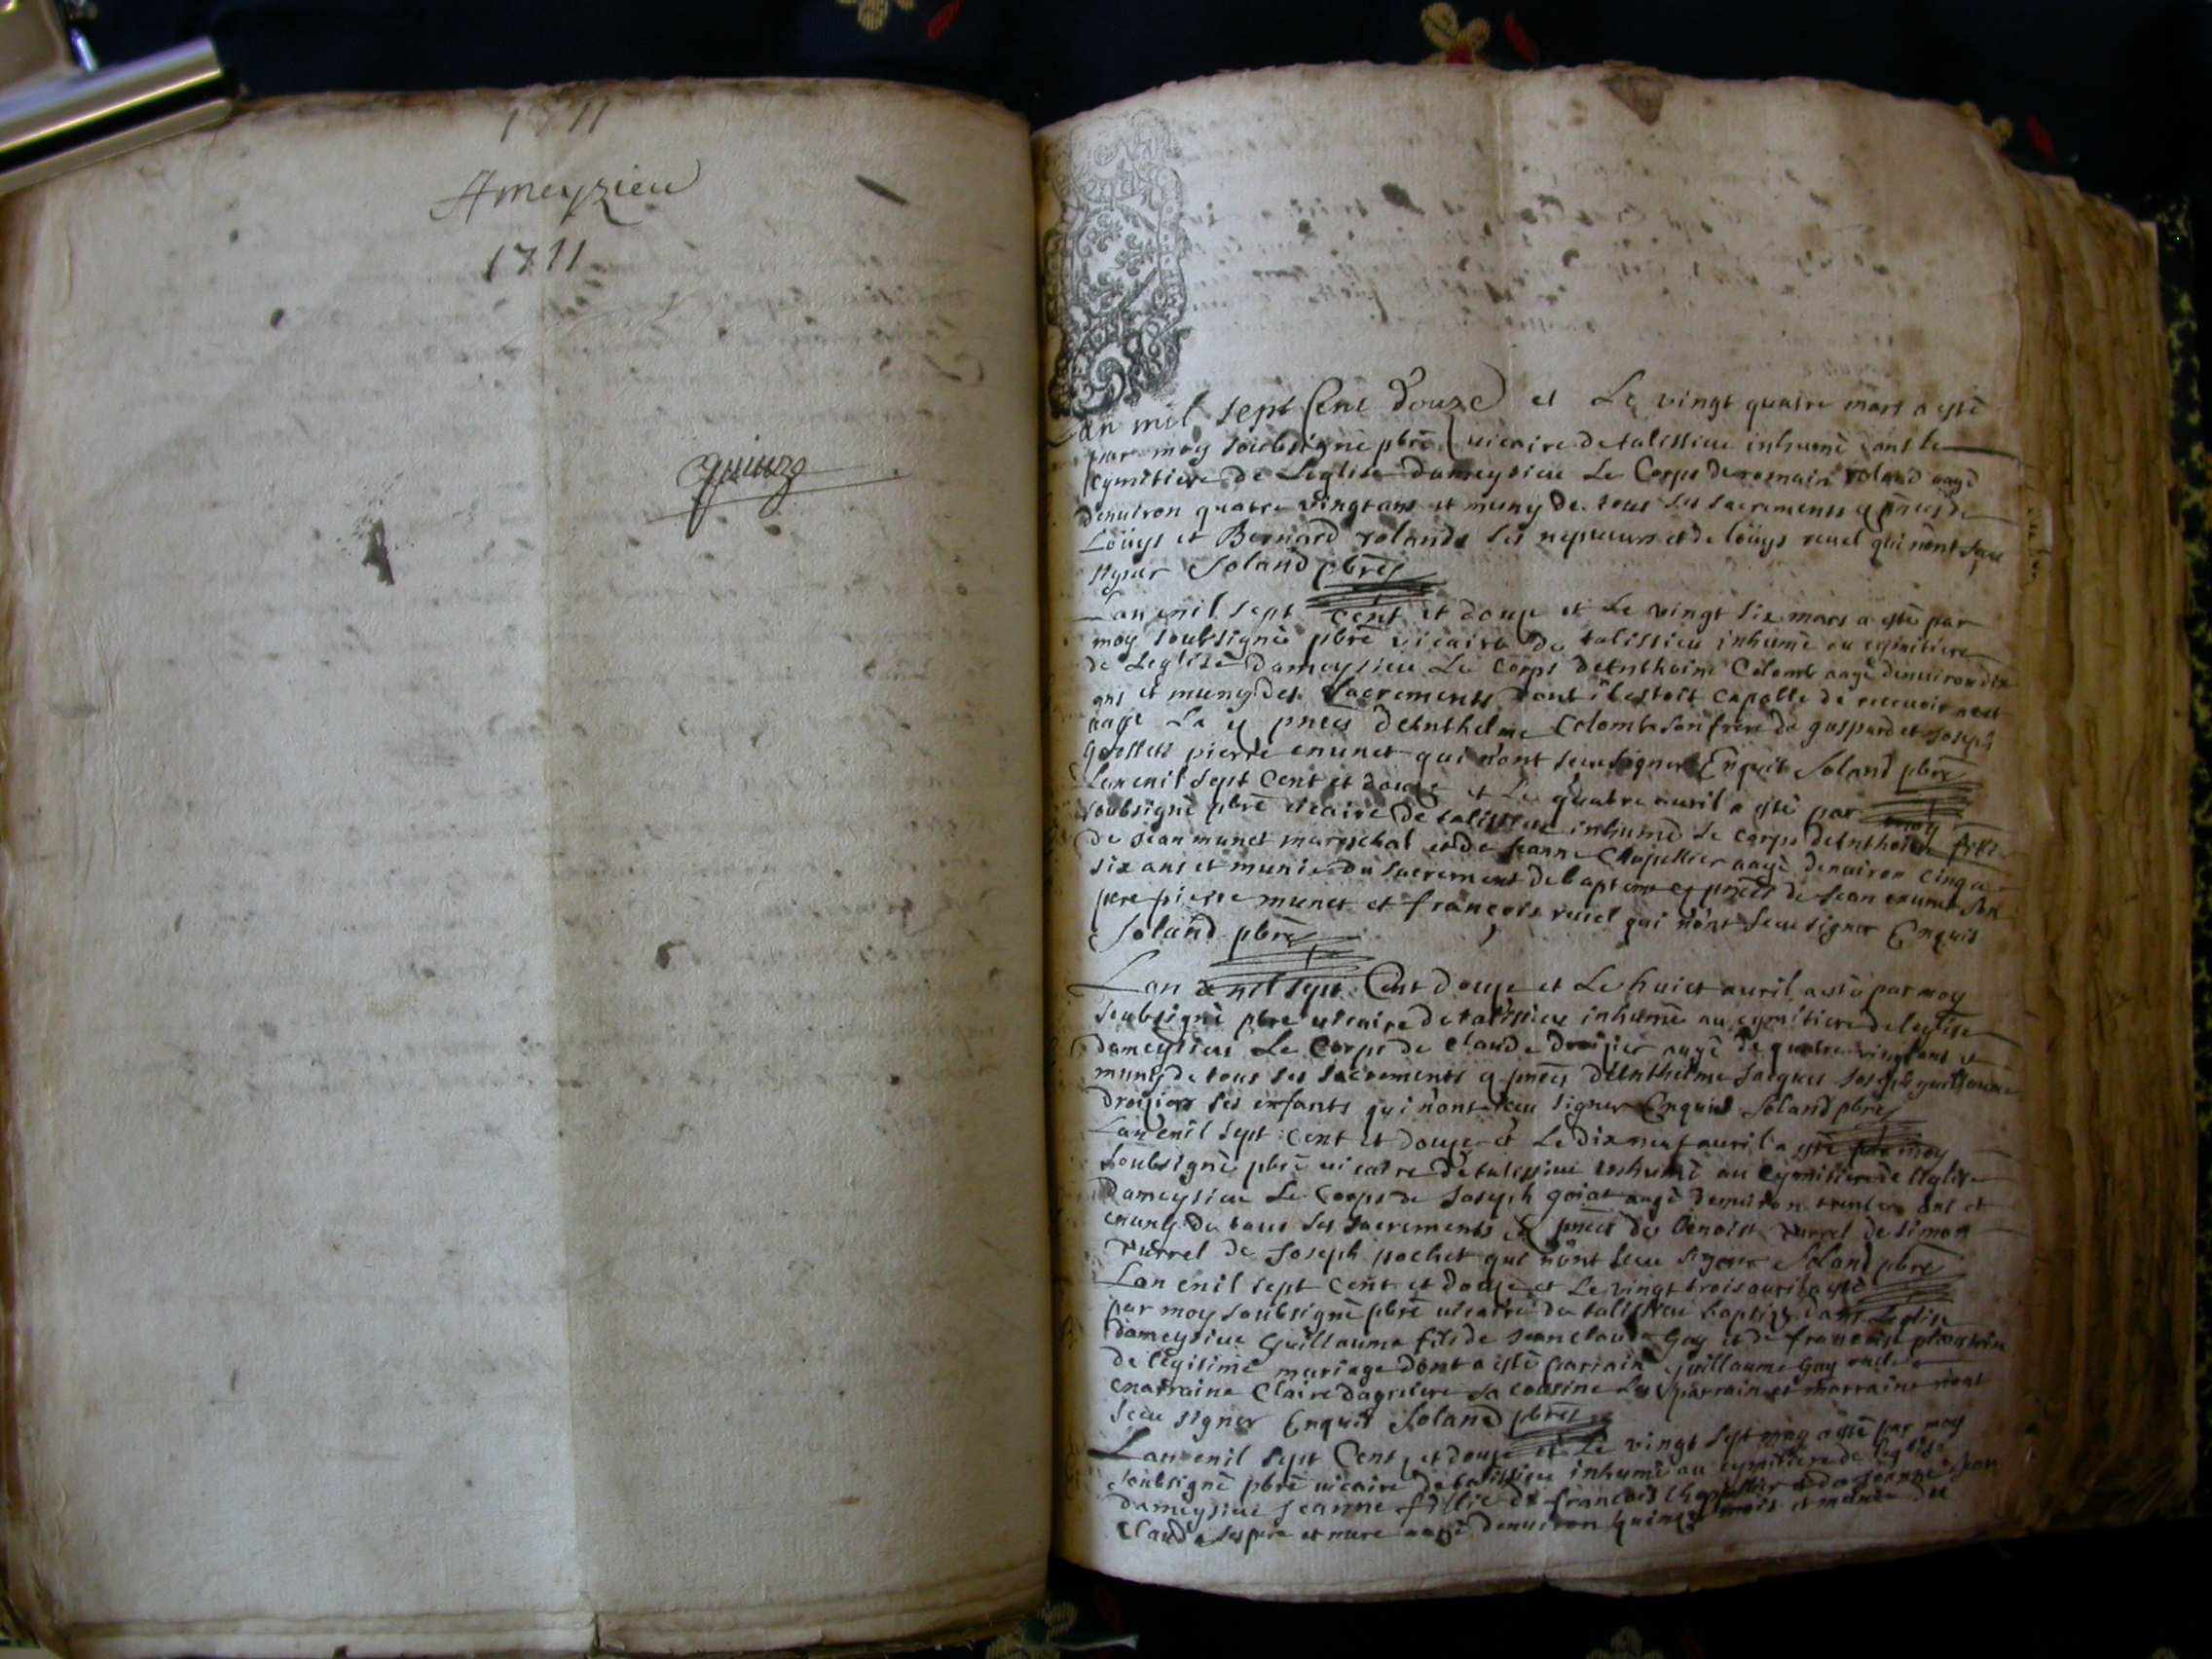 1711
Ameyzieu
1711
Lan mil sept Cent douze et Le vingt quatre mars a esté
par moy soubsigné pbre vicaire de talissieu inhumé dans le
cymitiere de Leglise dameysieu Le Corps de romain roland aagé
denuiron quatre vingt ans et muny de tous ses sacrements es pñces de
Louys et Bernard rolands ses nepueurs et de louys reuel qui nont sceu
signer Soland pbre
Lan mil sept cent et douze et Le vingt six mars a esté par
moy soubsigné pbre vicaire de talissieu inhumé au cymitiere
de Leglise dameysieu Le Corps danthoine Colomb aagé denuiron dix
ans et muny des Sacrements dont il estoit capable de receuoir
pnces danthelme Colomb son frere de gaspard et Joseph
pierre munet qui nont sceu signer Enquis Soland pbre
Lan mil sept Cent et douze et Le quatre auril a esté par moy
soubsigné pbre vicaire de talissieu inhumé le corps
de Jean munet mareschal et de Jeanne Chapellier aagé denuiron cinq a
six ans et munie du sacrement de baptême es pnces de Jean munet son
pere pierre munet et françois reuel qui nont sceu signer Enquis
Soland pbre
Lan mil sept Cent douze et Le huict auril a esté par moy
soubsigné pbre vicaire de talissieu inhumé au cymitiere de leglise
dameysieu Le Corps de Claude droisier aagé de quatre vingt ans et
muny de tous ses sacrements es pnces danthelme Jacques Joseph guillaume
ses enfants qui nont sceu signer Enquis Soland pbre
Lan mil sept cent et douze et Le dix neuf auril a esté par moy
soubsigné pbre vicaire de talissieu inhumé au Cymitiere de leglise
dameysieu Le Corps de Joseph goiat aagé denuiron ans et
muny de tous ses sacrements es pnces de benoist Durrel de simon
Durrel de Joseph pochet qui nont sceu signer Soland pbre
Lan mil sept cent et douze et Le vingt trois auril a esté
par moy soubsigné pbre vicaire de talissieu baptizé dans Leglise
dameysieu Guillaume fils de Jean claude Guy et de françoise
de legitime mariage dont a esté parrain guillaume Guy
marraine Claire sa cousine Les parrain et marraine nont
sceu signer Enquis Soland pbre
Lan mil sept Cent et douze et Le vingt sept may a esté par moy
soubsigné pbre vicaire de talissieu inhumé au cymitiere de leglise
dameysieu Jeanne fillie de francois Chapellier et de Jeanne Jean
Claude ses pere et mere aagé denuiron quinze mois et munie du